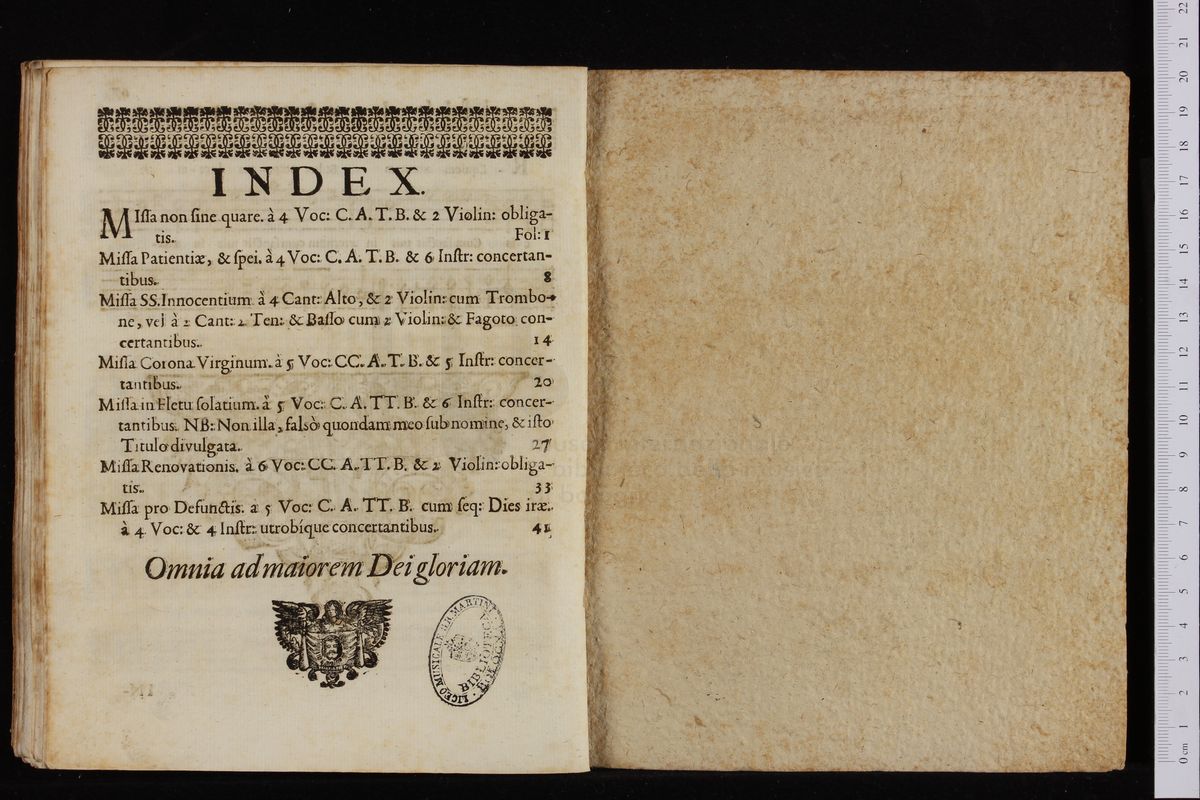 INDEX.
MIſſa non ſine quare. à 4 Voc: C. A. T. B. & 2 Violin: obliga-
tis. Fol: 1
Miſſa Patientiæ, & ſpei. à 4 Voc: C. A. T. B. & 6 Inſtr: concertan-
tibus. 8
Miſſa SS. Innocentium à 4 Cant: Alto, & 2 Violin: cum Trombo-
ne, vel à 2 Cant: 2 Ten: & Baſſo cum 2 Violin: & Fagoto con-
certantibus. 14
Miſſa Corona Virginum. à 5 Voc: CC. A. T. B. & 5 Inſtr: concer-
tantibus. 20
Miſſa in Fletu ſolatium. à 5 Voc: C. A. TT. B. & 6 Inſtr: concer-
tantibus. NB: Non illa, falsò quondam meo ſub nomine, & iſto
Titulo divulgata. 27
Miſſa Renovationis. à 6 Voc: CC. A. TT. B. & 2 Violin: obliga-
tis. 33
Miſſa pro Defunctis. a 5 Voc: C. A. TT. B. cum ſeq: Dies iræ.
à 4 Voc: & 4 Inſtr: utrobíque concertantibus. 41
Omnia ad maiorem Dei gloriam.
LICEO MUSICALE
MARTINI
BIBLIOTECA
0 cm 1 2 3 4 5 6 7 8 9 10 11 12 13 14 15 16 17 18 19 20 21 22